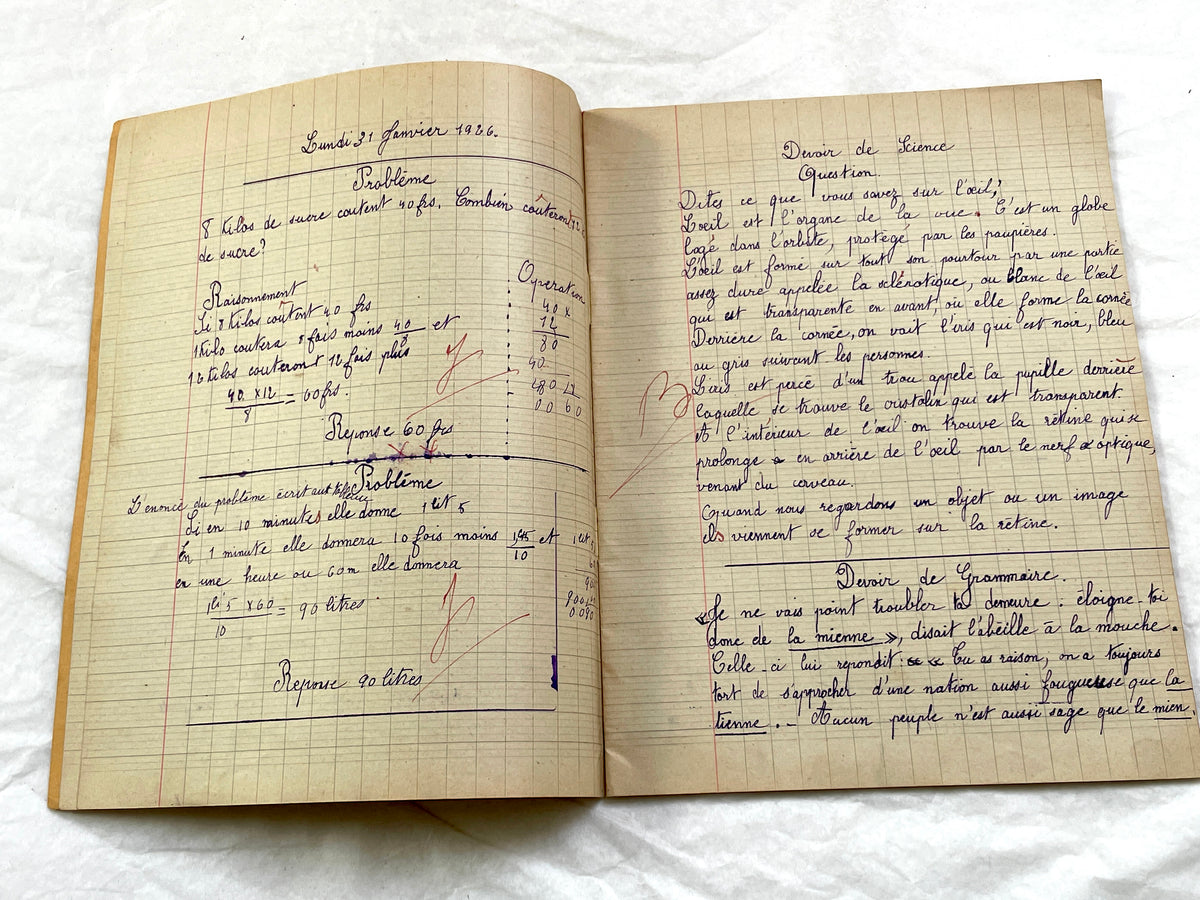 Lundi 31 Janvier 1926.
Problème
8 Kilos de sucre coutent 40 frs. Combien coûteront 12 K
de sucre?
Raisonnement
Si 8 Kilos coûtent 40 frs
1 Kilo coutera 8 fois moins 40/8 et
12 Kilos couteront 12 fois plus
40 x 12 / 8 = 60 frs.
Operation
40 x
12
80
40
480
00 60
Reponse 60 frs
Problème
L'enoncé du problème écrit aut tableau
Si en 10 minutes elle donne 1 lit 5
En 1 minute elle donnera 10 fois moins 1,5/10 et
en une heure ou 60 m elle donnera
1 li 5 x 60 / 10 = 90 litres
1 lit 5
Reponse 90 litres
Devoir de Science
Question.
Dites ce que vous savez sur l'œil?
L'oeil est l'organe de la vue. C'est un globe
logé dans l'orbite, protégé par les paupières.
L'œil est formé sur tout son pourtour par une partie
assez dure appelée la sclérotique, ou blanc de l'œil
qui est transparente en avant, où elle forme la cornée
Derrière la cornée, on voit l'iris qui est noir, bleu
ou gris suivant les personnes.
L'iris est percé d'un trou appelé la pupille derrière
laquelle se trouve le cristalin qui est transparent.
A l'intérieur de l'œil on trouve la rétine qui se
prolonge en arrière de l'œil par le nerf optique,
venant du cerveau.
Quand nous regardons un objet ou un image
ils viennent se former sur la rétine.
Devoir de Grammaire.
«Je ne vais point troubler ta demeure. éloigne-toi
donc de la mienne», disait l'abeille à la mouche.
Celle-ci lui repondit: « Tu as raison, on a toujours
tort de s'approcher d'une nation aussi fougueuse que la
tienne. - Aucun peuple n'est aussi sage que le mien.
B